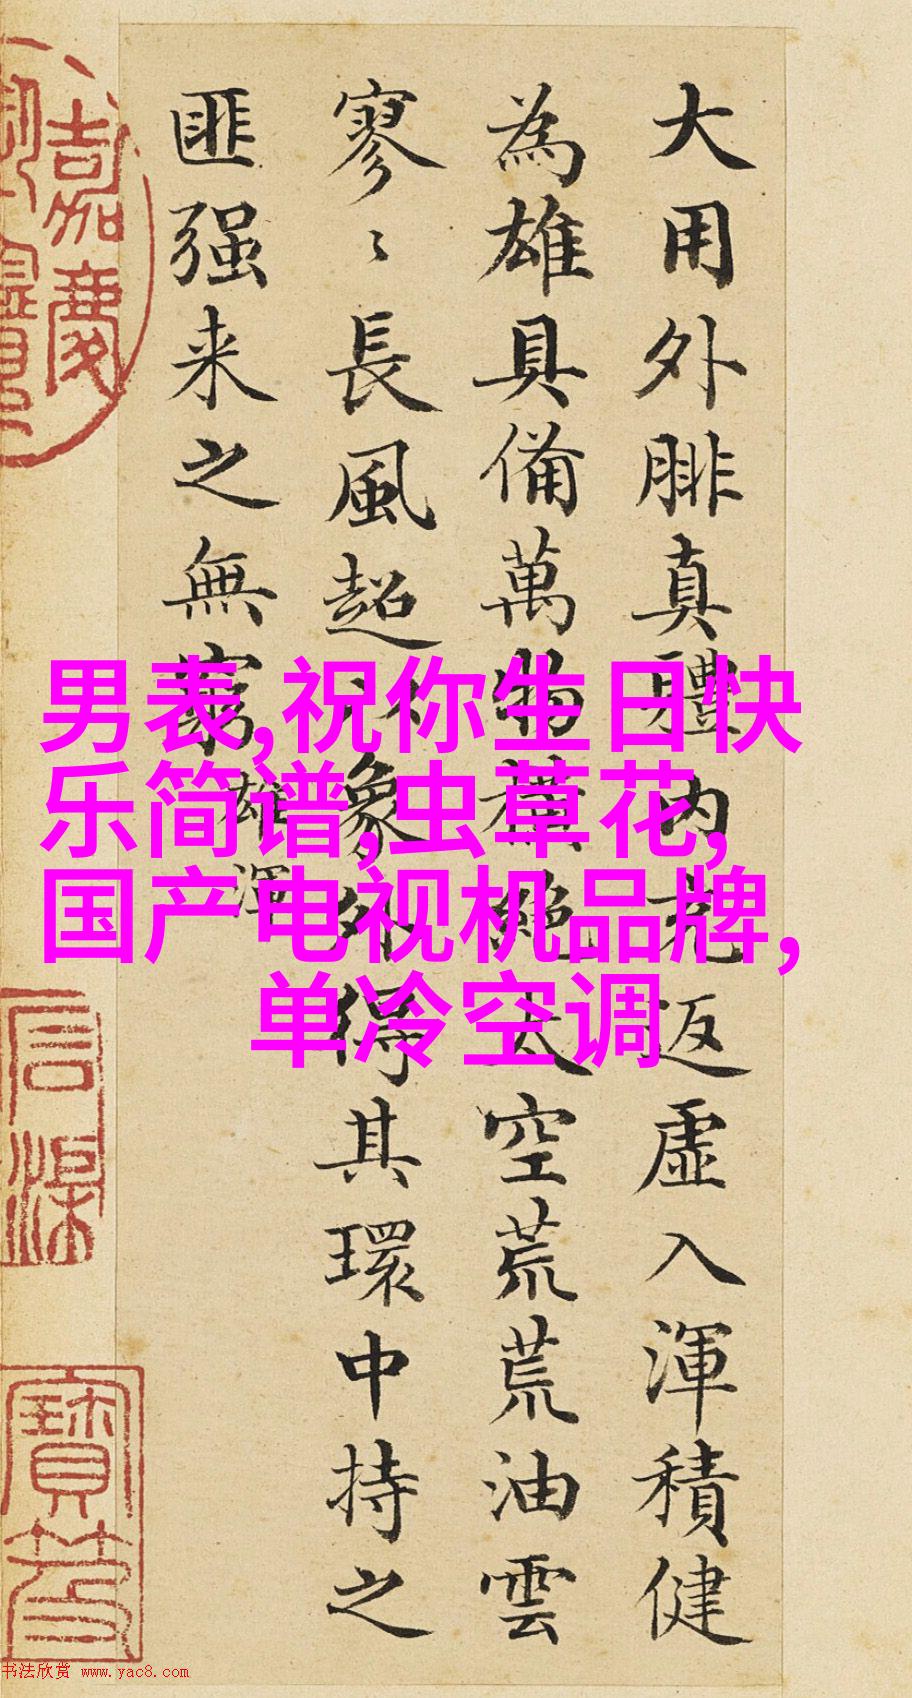 大用外腓真體内充返虛入渾積健
為雄具備萬物橫絕太空荒荒油雲
寥〻長風超以象外得其環中持之
匪强来之無窮
雄渾
男表,祝你生日快
乐简谱,虫草花,
国产电视机品牌,
单冷空调
嘉慶
书法欣赏 www.yac8.com